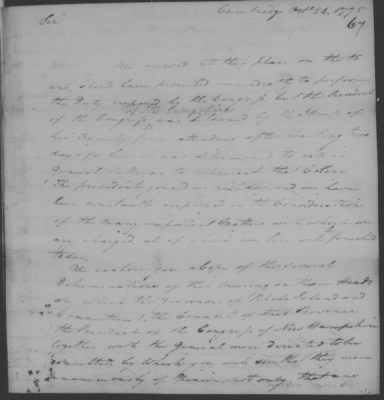 Cambridge Octr 24. 1775
67
Sir
We arrived at this place on the 15
and should have proceeded immediately to perform
the Duty imposed by the Congress but the President
of New Hampshire
of the Congress was detained by the Illness of
his Family from attending after waiting two
days for him it was determined to call in
General Sullivan to represent that Colony.
The president joined us next day, and we have
been constantly employed in the Consideration
of the many important Matters with which we
are charged, all of which we hope will be finished
to day,
We inclose you a Copy of the several
Determinations of the Meeting on those Heads
on which the Governors of Rhode Island and
Connecticut, the Council of this Province
the President of the Congress of New Hampshire
together with the General were directed to be
consulted; by which you will see that they were
unanimously of Opinion not only that no